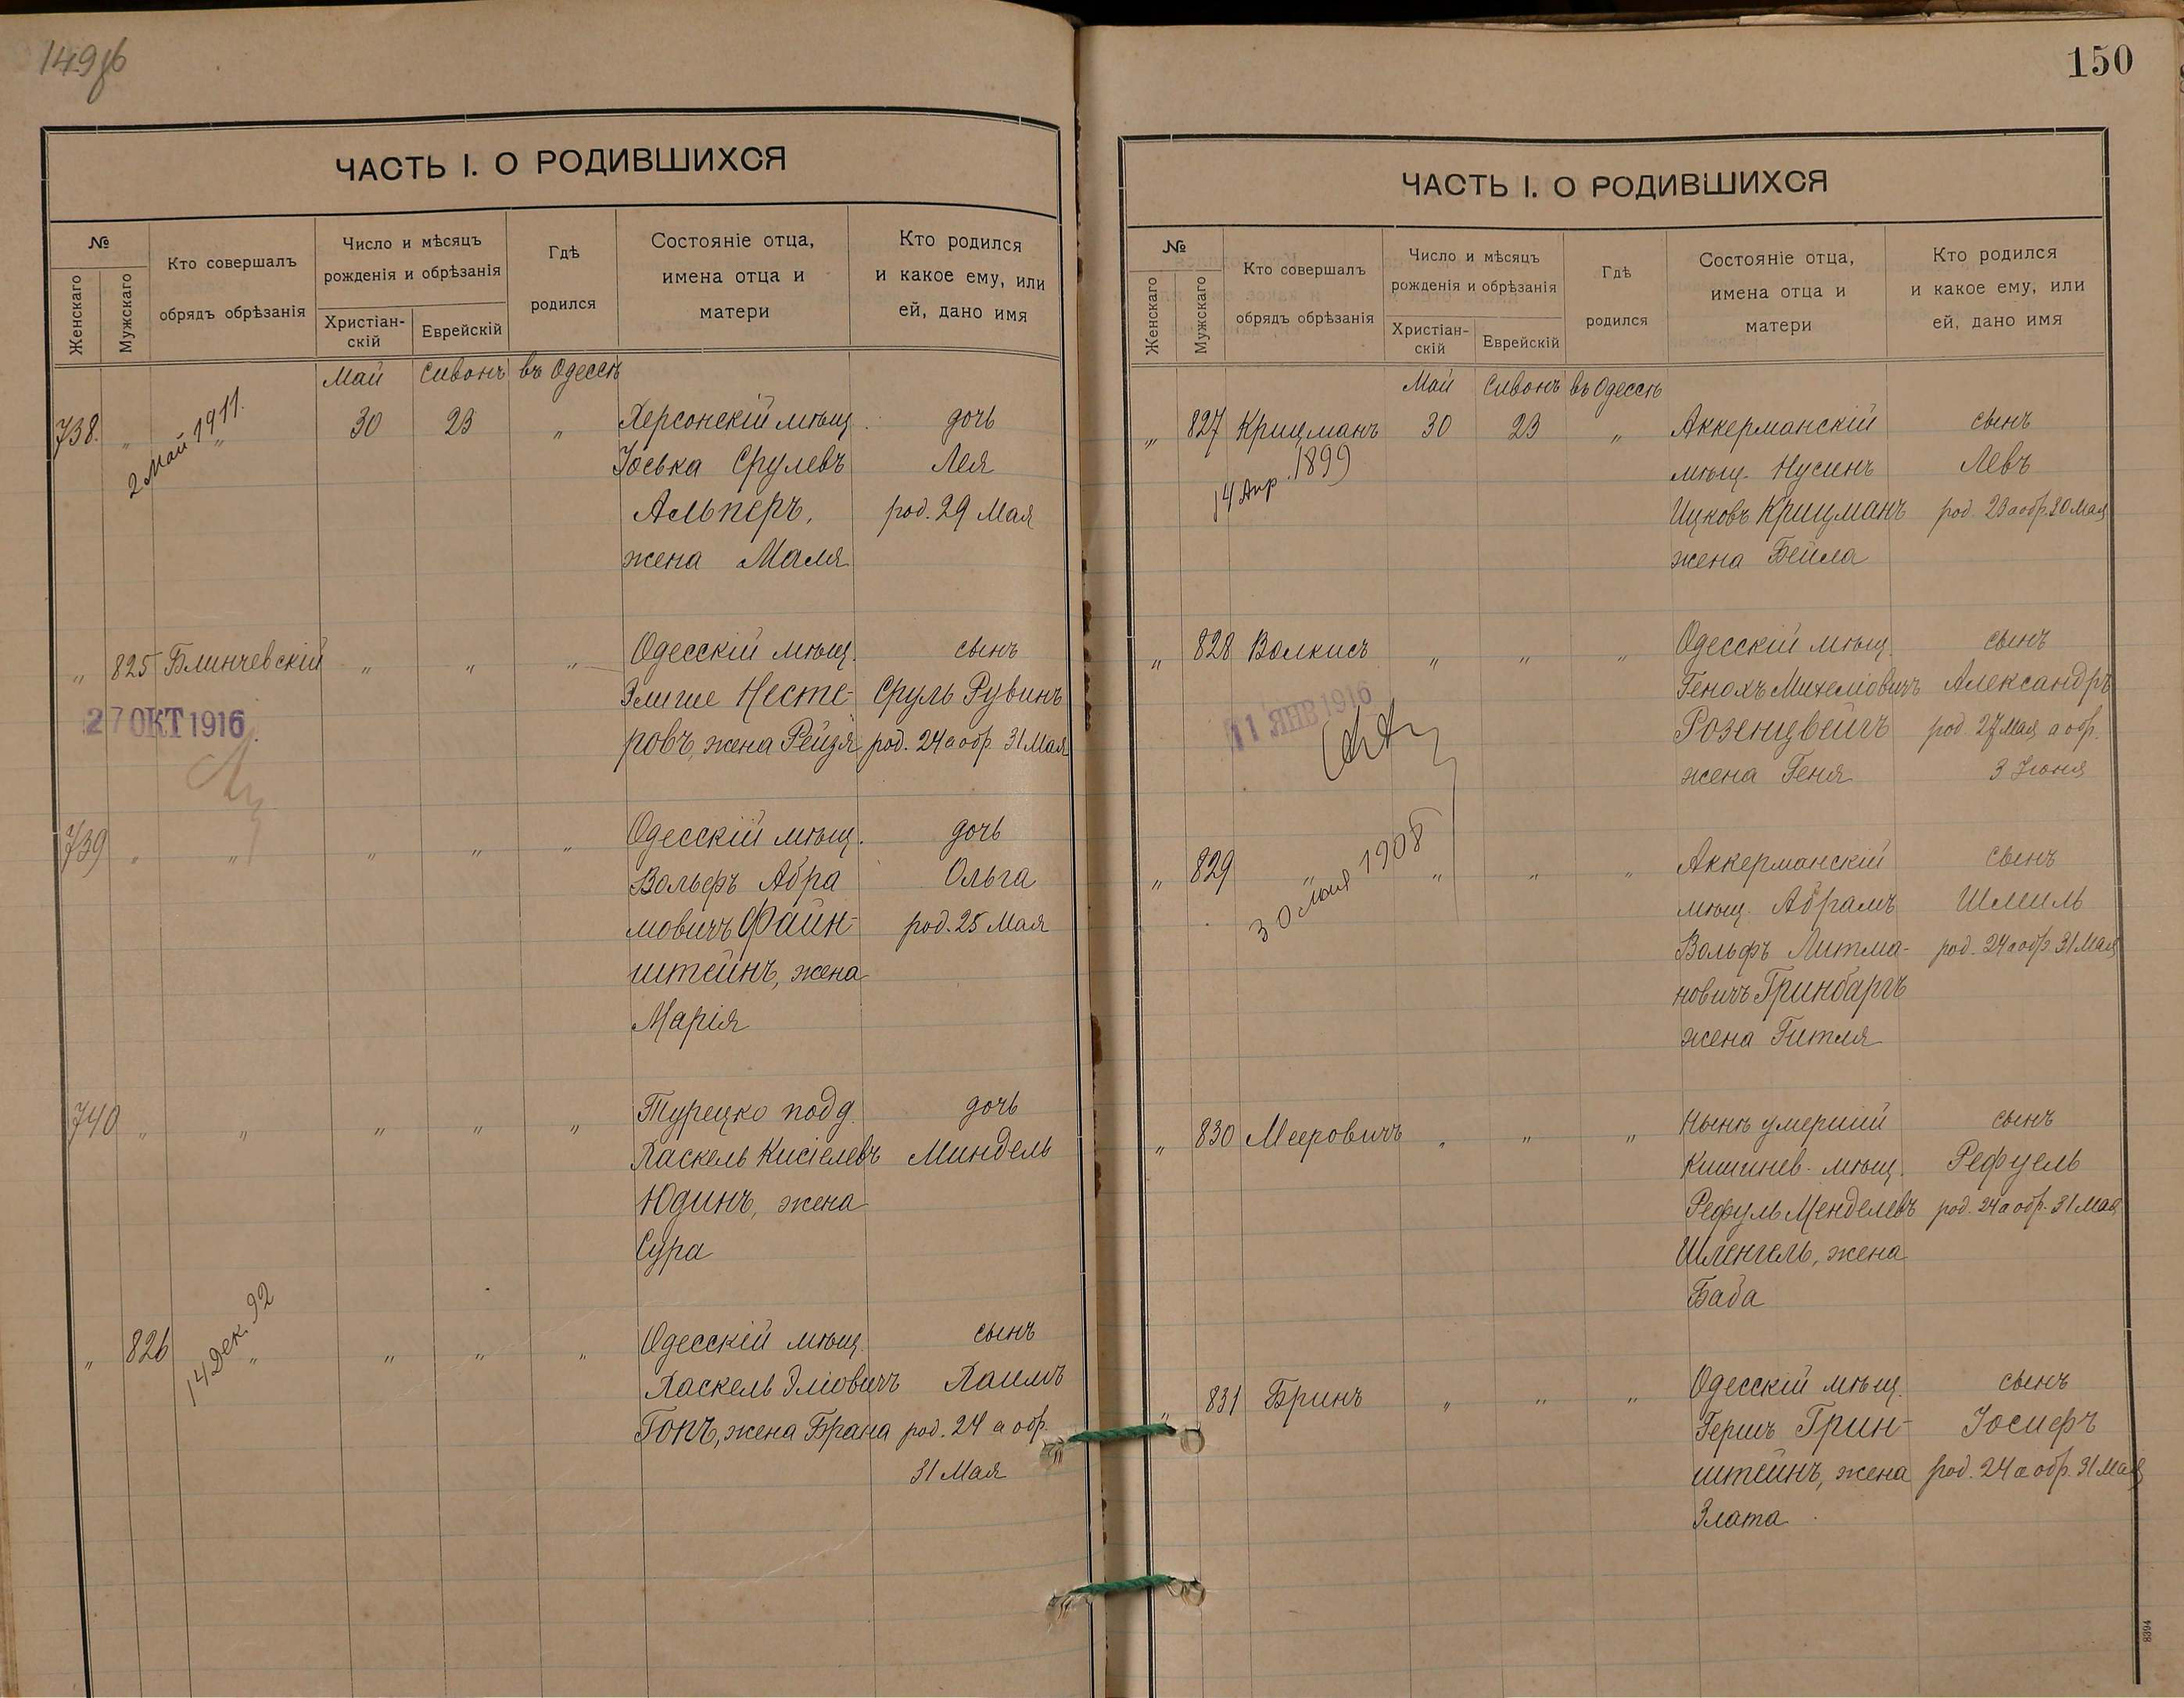 149об
ЧАСТЬ I. О РОДИВШИХСЯ
№
Женскаго
Мужскаго
Кто совершалъ
обрядъ обрѣзанія
Число и мѣсяцъ
рожденія и обрѣзанія
Христіан-
скій
Еврейскій
Гдѣ
родился
Состояніе отца,
имена отца и
матери
Кто родился
и какое ему, или
ей, дано имя
Май Сивонъ въ Одессѣ
738. " " 30 23 " Херсонскій мѣщ. дочь
2 Май 1911.
Іоська Срулевъ Лея
Альперъ, род. 29 Мая
жена Маля
" 825 Блинчевскій " " " Одесскій мѣщ. сынъ
Элише Несте- Сруль Рувинъ
27 ОКТ 1916
ровъ, жена Рейзя род. 24 а обр. 31 Мая
739 " " " " " Одесскій мѣщ. дочь
Вольфъ Абра Ольга
мовичъ Файн- род. 25 Мая
штейнъ, жена
Марія
740 " " " " " Турецко подд. дочь
Хаскель Кисіелевъ Миндель
Юдинъ, жена
Сура
" 826 " " " " Одесскій мѣщ. сынъ
14 Дек. 92
Хаскель Эліовичъ Хаимъ
Гопъ, жена Брана род. 24 а обр.
31 Мая
150
ЧАСТЬ I. О РОДИВШИХСЯ
№
Женскаго
Мужскаго
Кто совершалъ
обрядъ обрѣзанія
Число и мѣсяцъ
рожденія и обрѣзанія
Христіан-
скій
Еврейскій
Гдѣ
родился
Состояніе отца,
имена отца и
матери
Кто родился
и какое ему, или
ей, дано имя
Май Сивонъ въ Одессѣ
" 827 Крицманъ 30 23 " Аккерманскій сынъ
14 Апр. 1899
мѣщ. Нусинъ Левъ
Ицковъ Крицманъ род. 23 а обр. 30 Мая
жена Бейла
" 828 Волкисъ " " " Одесскій мѣщ. сынъ
Генохъ Михеліовичъ Александръ
11 ЯНВ 1916
Розенцвейгъ род. 27 Мая а обр.
жена Геня 3 Іюня
" 829 " " " " Аккерманскій сынъ
30 Іюня 1908
мѣщ. Абрамъ Шмиль
Вольфъ Литма- род. 24 а обр. 31 Мая
новичъ Гринбаргъ
жена Гитля
" 830 Мееровичъ " " " Нынѣ умершій сынъ
Кишинев. мѣщ. Рефуель
Рефуль Менделевъ род. 24 а обр. 31 Мая
Шленгель, жена
Баба
" 831 Бринъ " " " Одесскій мѣщ. сынъ
Гершъ Грин- Іосифъ
штейнъ, жена род. 24 а обр. 31 Мая
Злата
8394